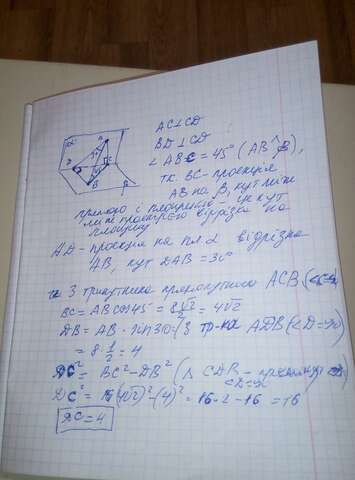 AC⊥CD
BD⊥CD
∠ABC=45° (AB^β),
тк. BC-проекція
AB на β, кут між
прямою і площиною - це кут
між проекцією відрізка на
площину
AD - проекція на пл. α відрізка
AB, кут DAB=30°
З трикутника прямокутного ACB
BC=ABcos45=8√2/2=4√2
DB=AB·sin30=(З тр-ка ADB(∠D=90)
=8·1/2=4
DC²=BC²-DB² (Δ CDB -
DC²=(4√2)²-(4)²=16·2-16=16
DC=4